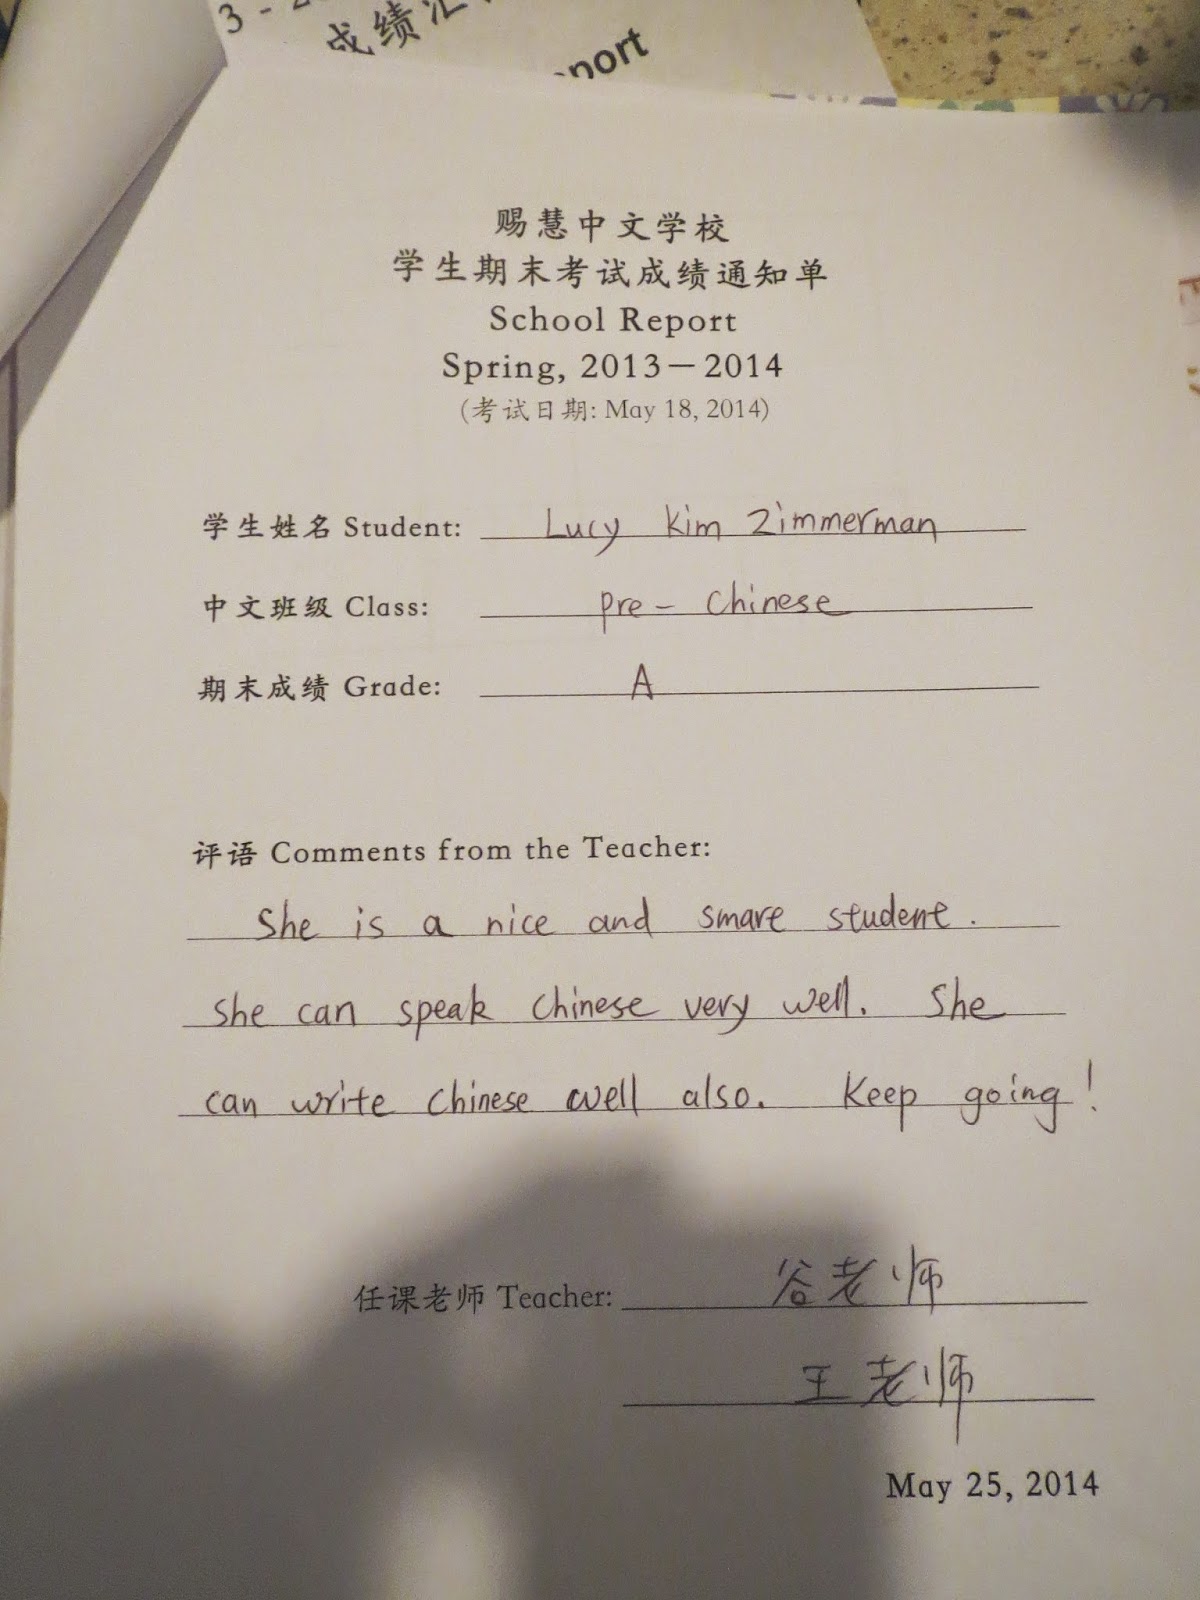 成绩汇
port
赐慧中文学校
学生期末考试成绩通知单
School Report
Spring, 2013—2014
(考试日期: May 18, 2014)
学生姓名 Student: Lucy Kim Zimmerman
中文班级 Class: Pre - Chinese
期末成绩 Grade: A
评语 Comments from the Teacher:
She is a nice and smare student.
She can speak Chinese very well. She
can write Chinese well also. Keep going!
任课老师 Teacher: 谷老师
王老师
May 25, 2014